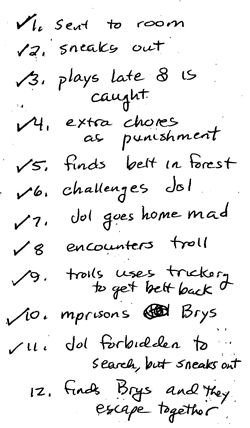 ✓1. Sent to room
✓2. sneaks out
✓3. plays late & is
caught
✓4. extra chores
as punishment
✓5. finds belt in forest
✓6. challenges Jol
✓7. Jol goes home mad
✓8 encounters troll
✓9. trolls uses trickery
to get belt back
✓10. mprisons Brys
✓11. Jol forbidden to
search, but sneaks out
12. finds Brys and they
escape together